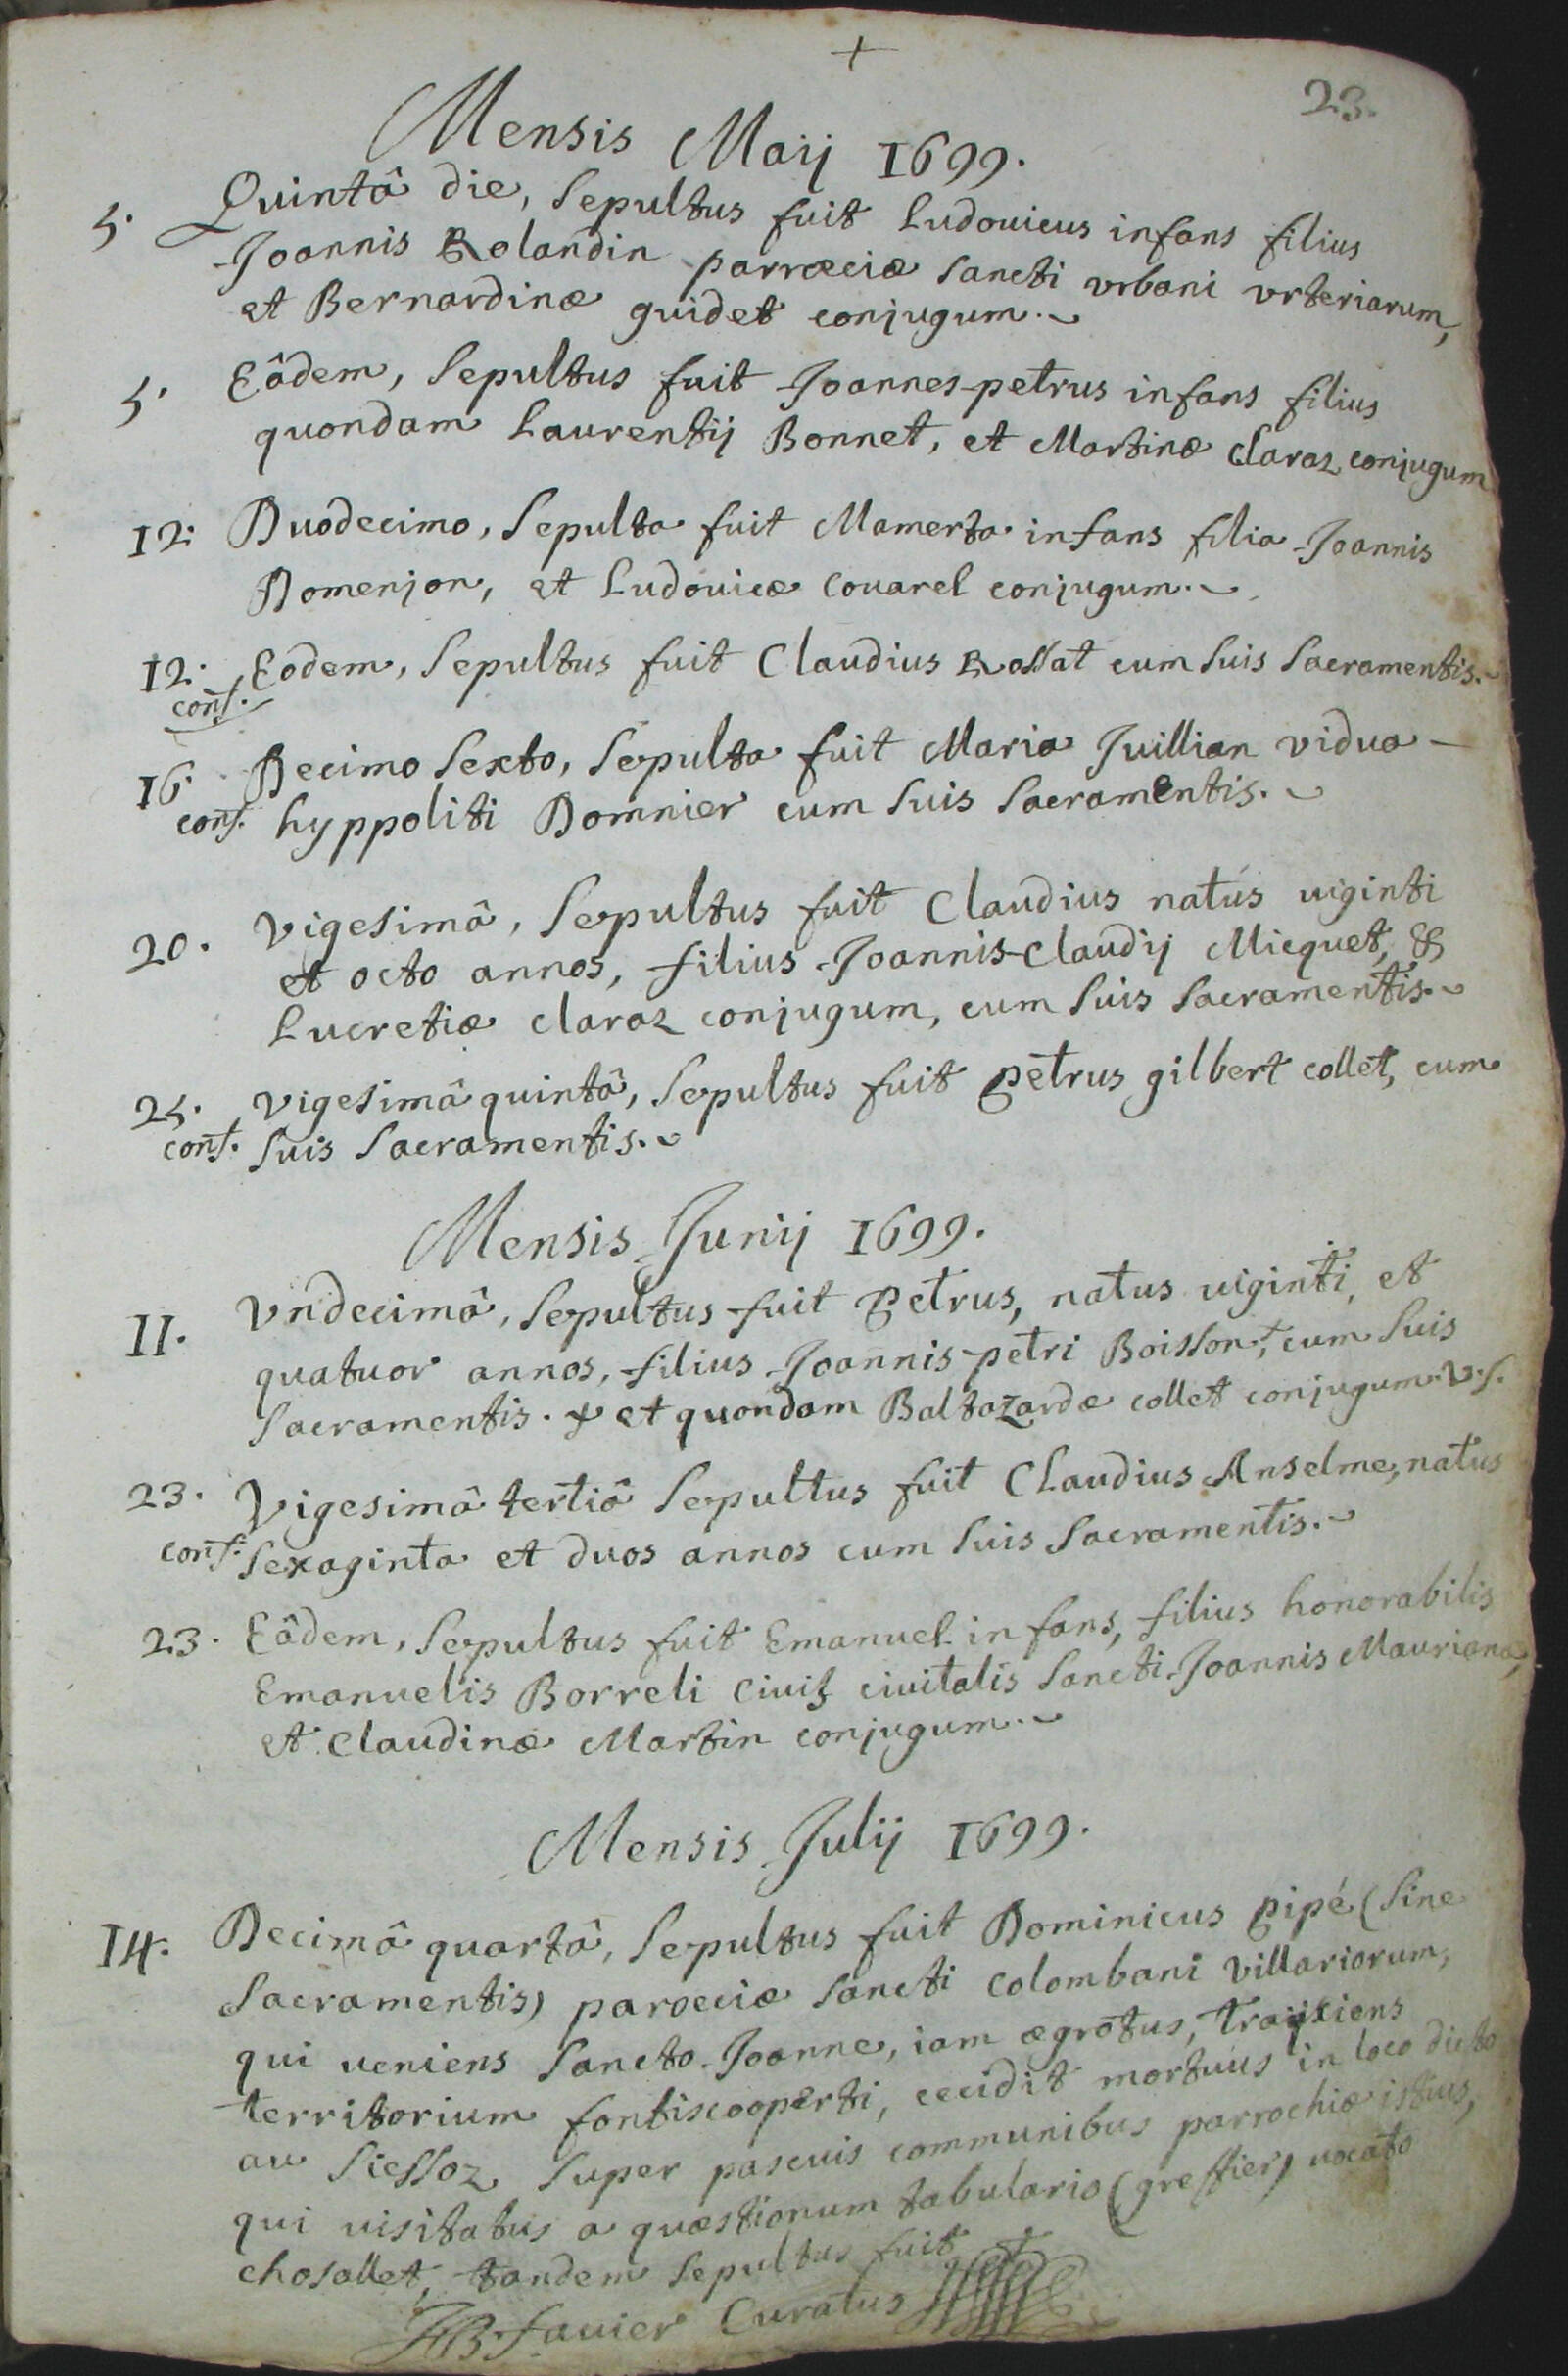 +
23.
Mensis Maij 1699.
5. Quintâ die, sepultus fuit Ludouicus infans filius
Joannis Rolandin parrœciæ sancti vrbani vrteriarum,
et Bernardinæ guidet conjugum.
5. Eâdem, sepultus fuit Joannes-petrus infans filius
quondam Laurentij Bonnet, et Martinæ claraz conjugum
12. Duodecimo, sepulta fuit Mamerta infans filia Joannis
Domenjon, et Ludouicæ Couarel conjugum.
12. Eodem, sepultus fuit Claudius Rossat cum suis sacramentis.
conf.
16 Decimo sexto, sepulta fuit Maria Juillian vidua
conf. hyppoliti Domnier cum suis sacramentis.
20. Vigesimâ, sepultus fuit Claudius natús uiginti
et octo annos, filius Joannis-Claudij Micquet, &
Lucretiæ claraz conjugum, cum suis sacramentis.
25. Vigesimâ quintâ, sepultus fuit petrus gilbert collet, cum
conf. suis sacramentis.
Mensis Junij 1699.
11. Vndecimâ, sepultus fuit Petrus, natus uiginti et
quatuor annos, filius Joannis-petri Boisson,+ cum suis
sacramentis. + et quondam Baltazardæ collet conjugum. v. s.
23. Vigesimâ tertiâ sepultus fuit Claudius Anselme, natus
conf. sexaginta et duos annos cum suis sacramentis.
23. Eâdem, sepultus fuit Emanuel infans, filius honorabilis
Emanuelis Borreli ciuis ciuitatis sancti Joannis Maurianæ,
et Claudinæ Martin conjugum.
Mensis Julij 1699.
14. Decimâ quartâ, sepultus fuit Dominicus pipé (sine
sacramentis) parœciæ sancti Colombani villariorum,
qui ueniens sancto Joanne, iam ægrotus, trajiciens
territorium fontiscooperti, cecidit mortuus in loco dicto
au siessoz super pascuis communibus parrochiæ istius,
qui uisitatus a quæstionum tabulario (greffier) uocato
chosallet, tandem sepultus fuit
JB favier Curatus